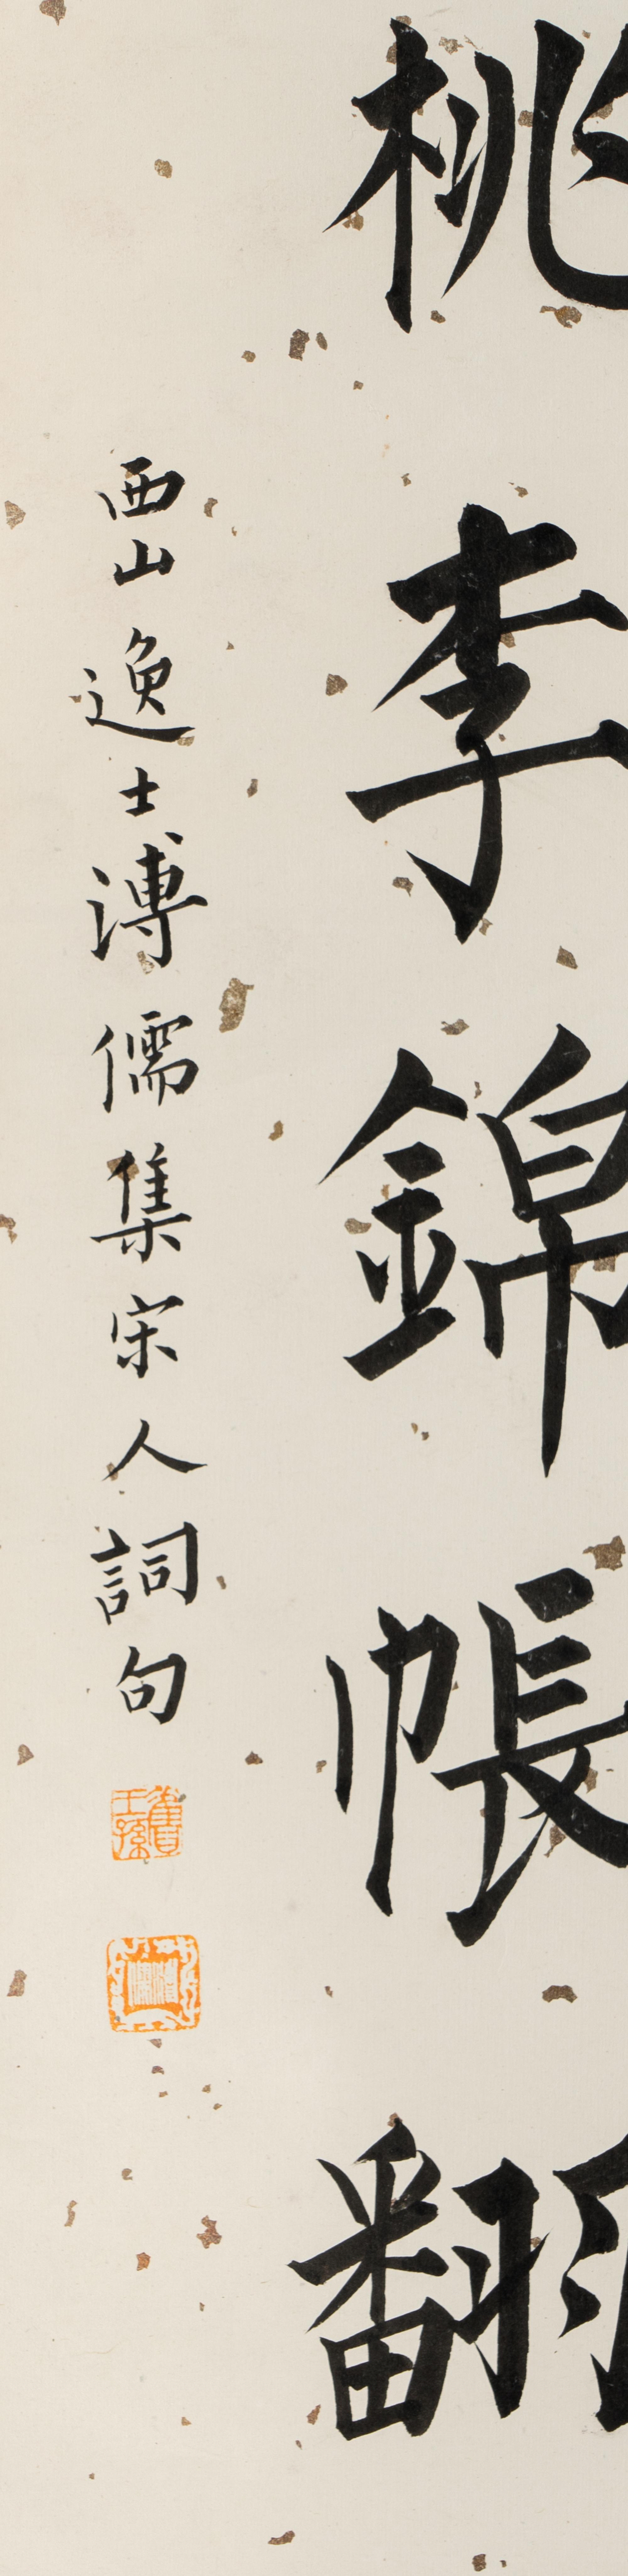 桃李錦帳翻
西山逸士溥儒集宋人詞句
舊王孫